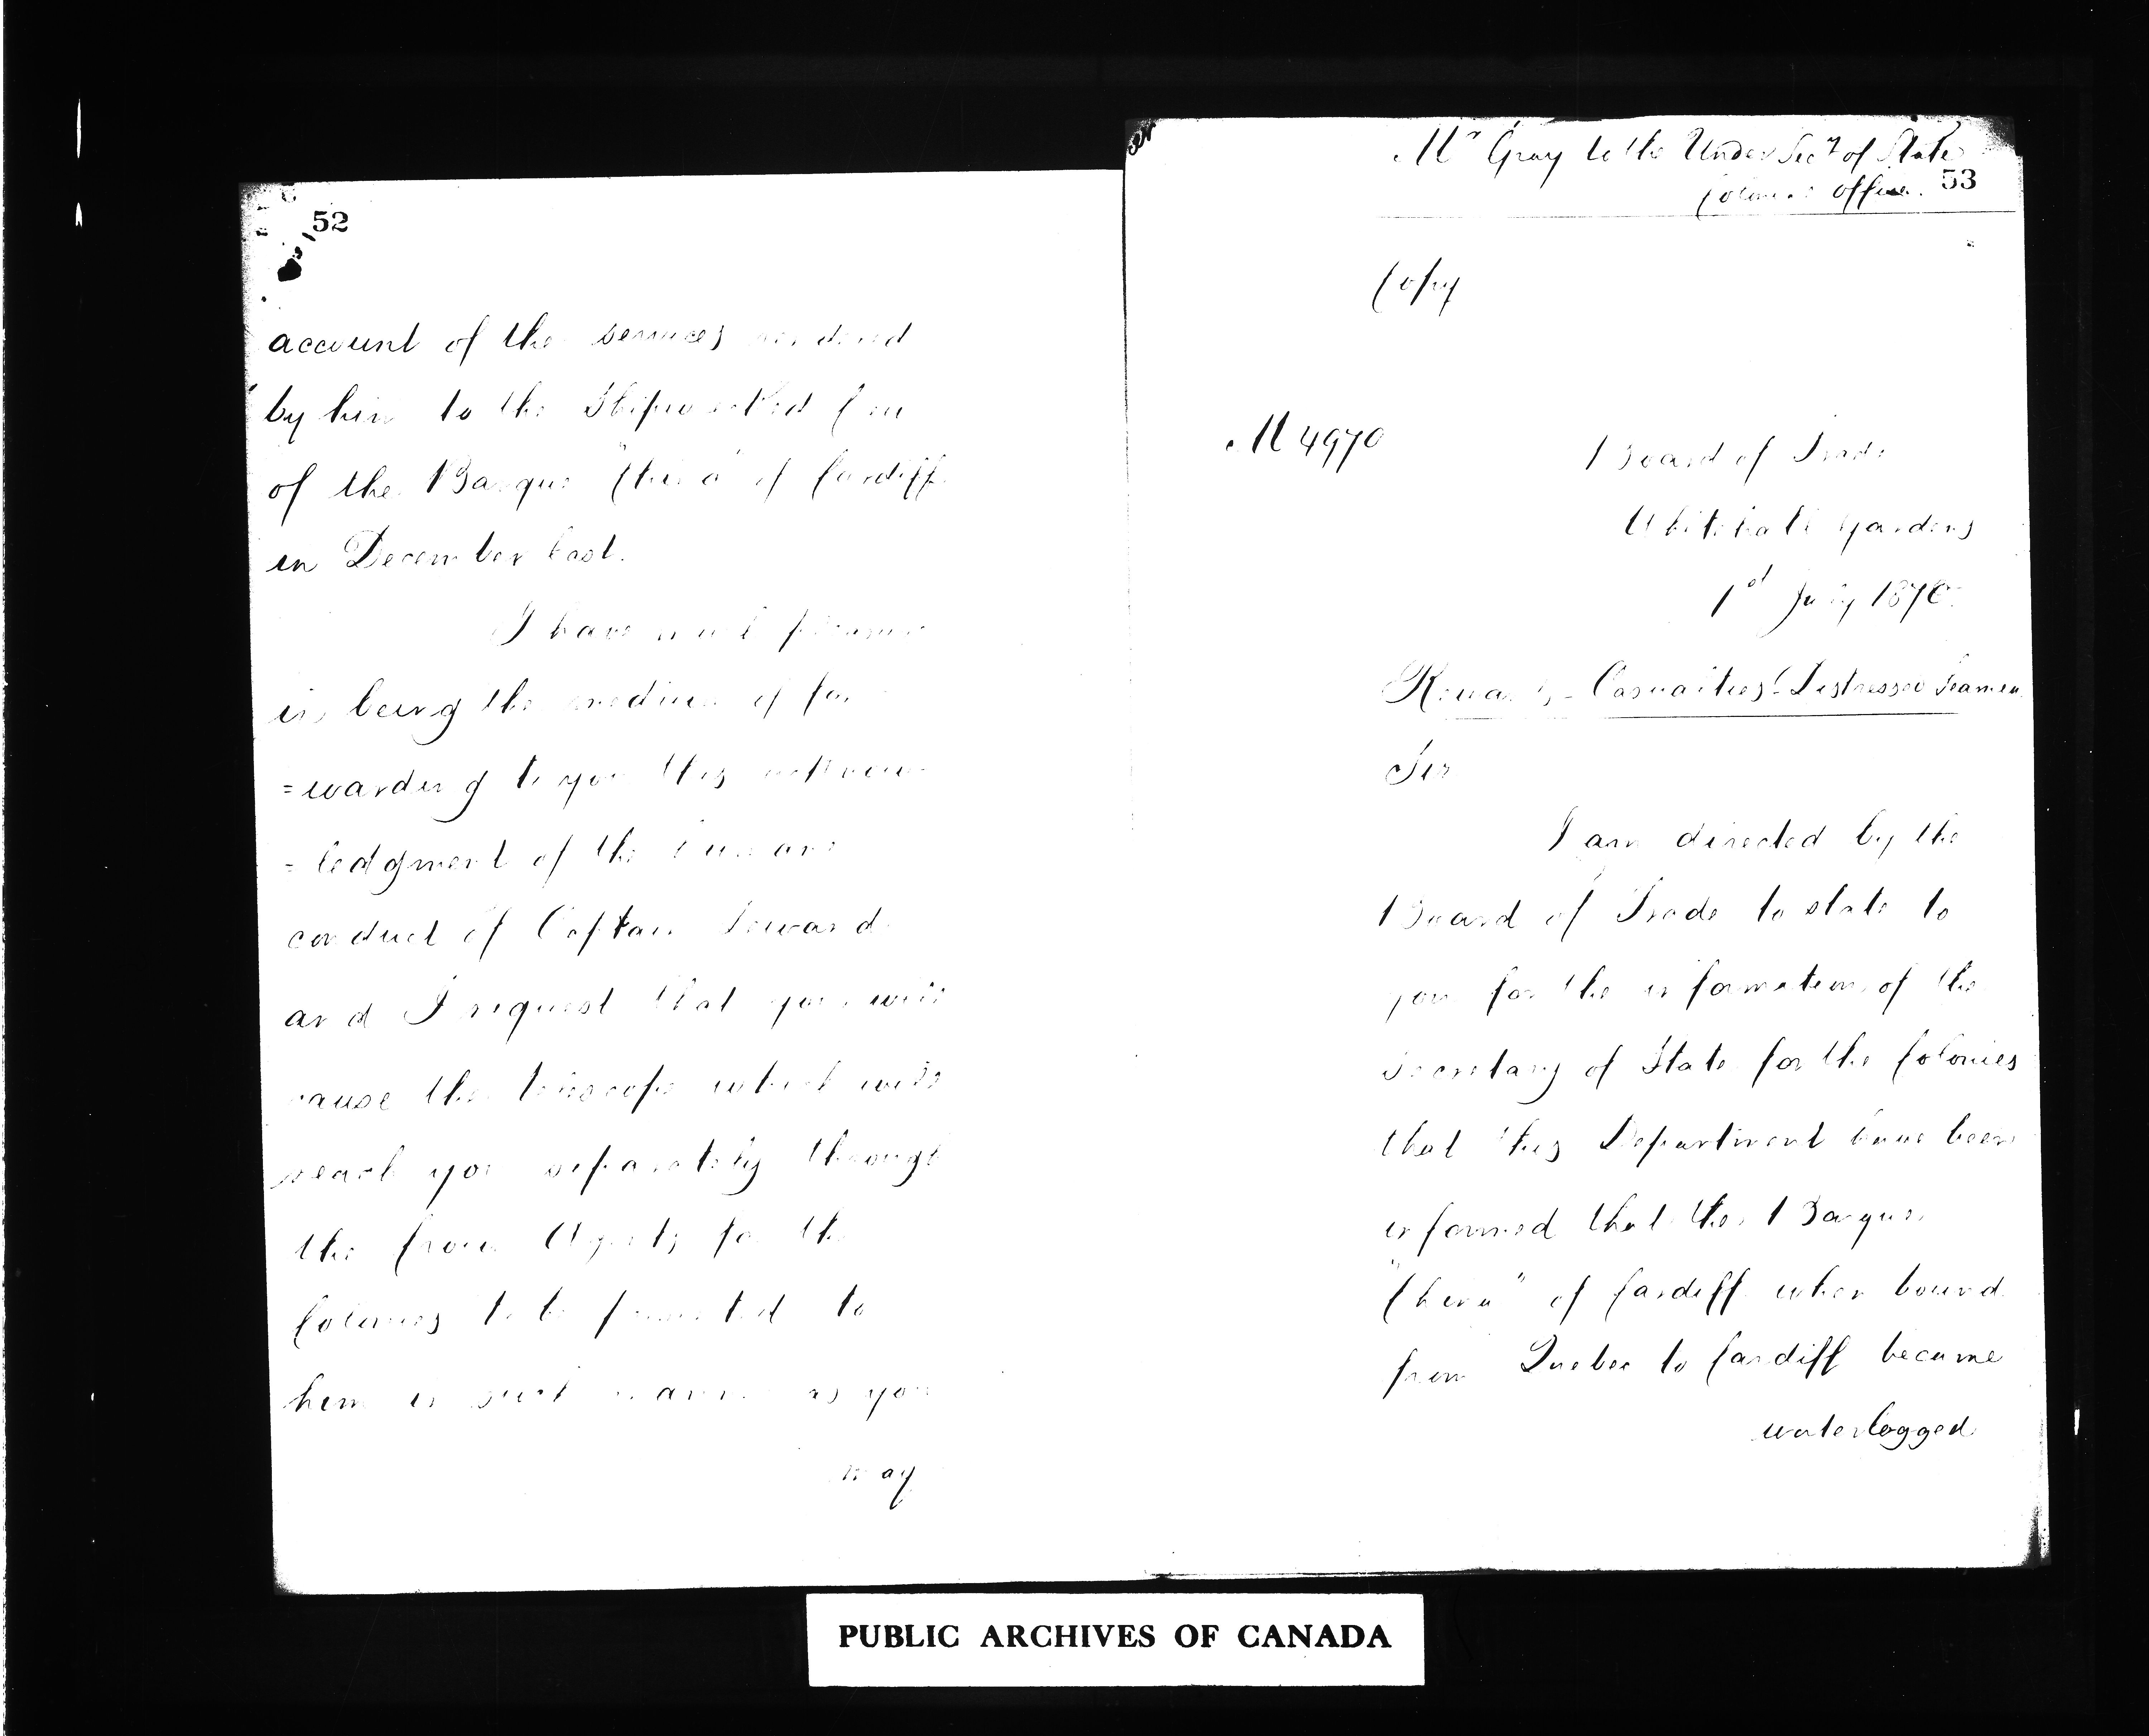 52
account of the services rendered
by him to the Shipwrecked Crew
of the Barque "China" of Cardiff
in December last.
I have much pleasure
in being the medium of for
=warding to you this acknow
=ledgment of the humane
conduct of Captain
and I request that you will
cause the telescope which will
reach you separately through
the Crown Agents for the
Colonies to be presented to
him in such manner as you
may
Mr Gray to the Under Secy of State
Colonial Office. 53
Copy
M 4970
Board of Trade
Whitehall Gardens
1st July 1870
Rewards - Casualties - Distressed Seamen
Sir
I am directed by the
Board of Trade to state to
you for the information of the
Secretary of State for the Colonies
that this Department have been
informed that the Barque
"China" of Cardiff when bound
from Quebec to Cardiff became
waterlogged
PUBLIC ARCHIVES OF CANADA